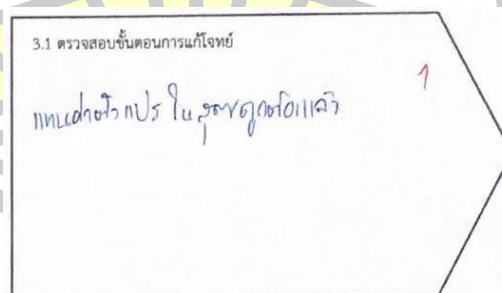 3.1 ตรวจสอบขั้นตอนการแก้โจทย์
1
แทนค่าตัวแปร ในสูตรถูกต้องแล้ว